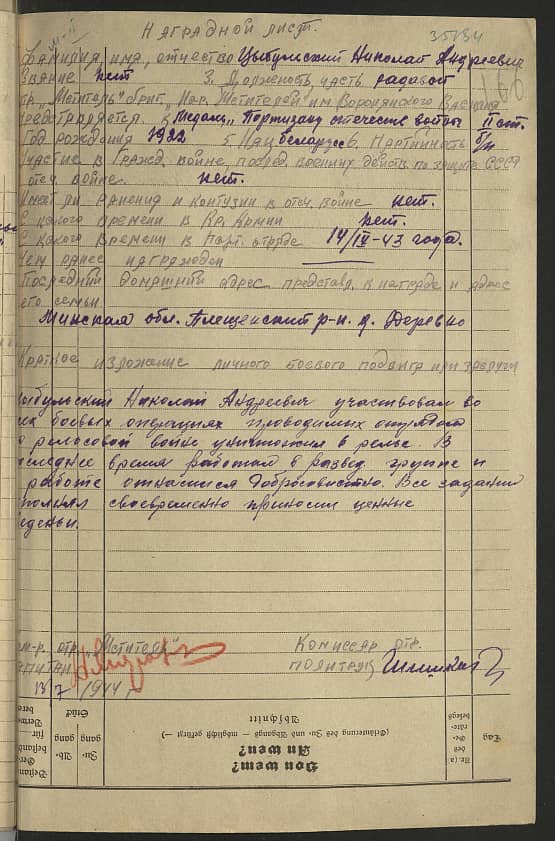 Наградной лист.
35134
Фамилия, имя, отчество Цыбульский Николай Андреевич
Звание нет 3. Должность, часть рядовой
отр. „Мститель" бриг. „Нар. Мстителей" им. Воронянского Василия
Представляется к Медали „Партизану отечеств войны II ст.
Год рождения 1922 5 Нац беларусс 6. Партийность б/п
участие в гражд. войне, послед. военных действ. по защите СССР
отеч войне. нет.
Имеет ли ранения и контузии в отеч. войне нет.
С какого времени в Кр. Армии нет.
С какого времени в парт. отряде 14/IV-43 года.
Чем ранее награжден
Последний домашний адрес представл. к награде и адрес
его семьи.
Минская обл. Плещенский р-н. д. Деревно
Краткое изложение личного боевого подвига или заслуги
Цыбульский Николай Андреевич участвовал во
всех боевых операциях проводимых отрядом
в рельсовой войне уничтожил 8 рельс. В
последнее время работал в развед. группе и
к работе относился добросовистно. Все задания
выполнял своевременно приносил ценные
сведеньи.
ком-р. отр. „Мститель" Комиссар отр.
капитан политрук
13 7 1944 г.
Tag
Nr. (a) des Ge- belegs
Von wem?
An wen?
(Erläuterung des Zu- und Abgangs — möglichst gefürzt —)
Abschnitt
Zu- gang
Ab- gang
Stück
Bestand